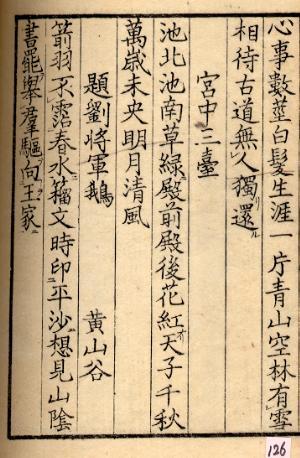 心事數莖白髮生涯一片青山空林有雪
相待古道無人獨還
宮中三臺
池北池南草綠殿前殿後花紅天子千秋
萬歲未央明月清風
題劉將軍鵝 黃山谷
箭羽不霑春水籀文時印平沙想見山陰
書罷舉羣驅向王家
126